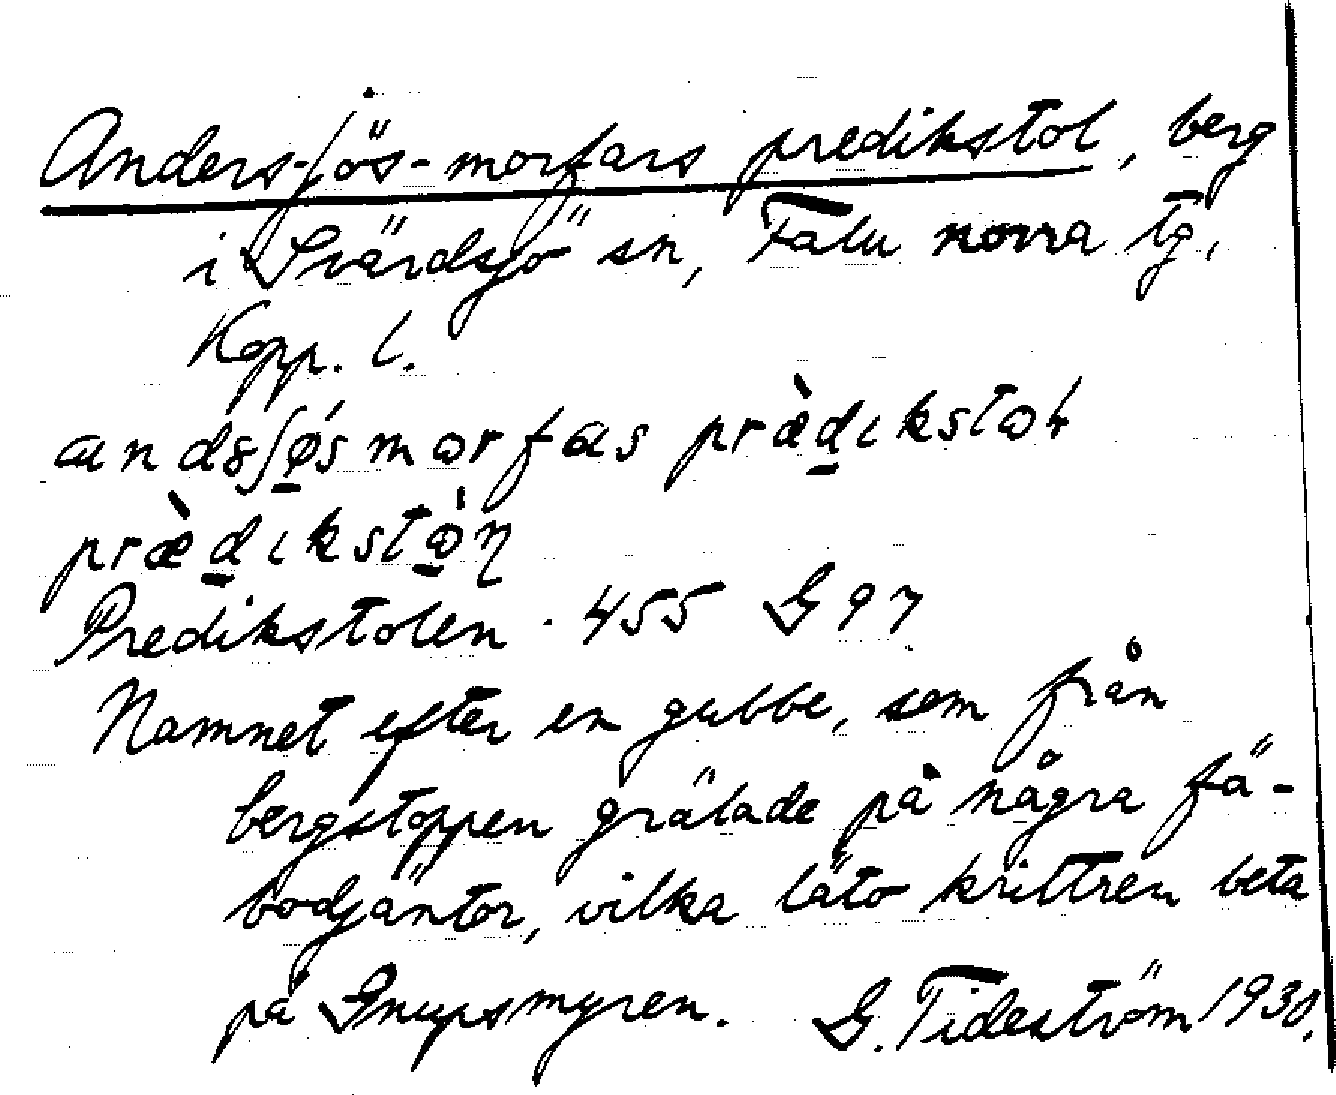 Anders-Jös-morfars predikstol, berg
i Svärdsjö sn, Falu norra tg,
Kopp. l.
Predikstolen. 455 G 97
Namnet efter en gubbe, som från
bergstoppen grälade på några fä-
bodjäntor, vilka läto krittren beta
på Gnupsmyren. G. Tideström 1930.